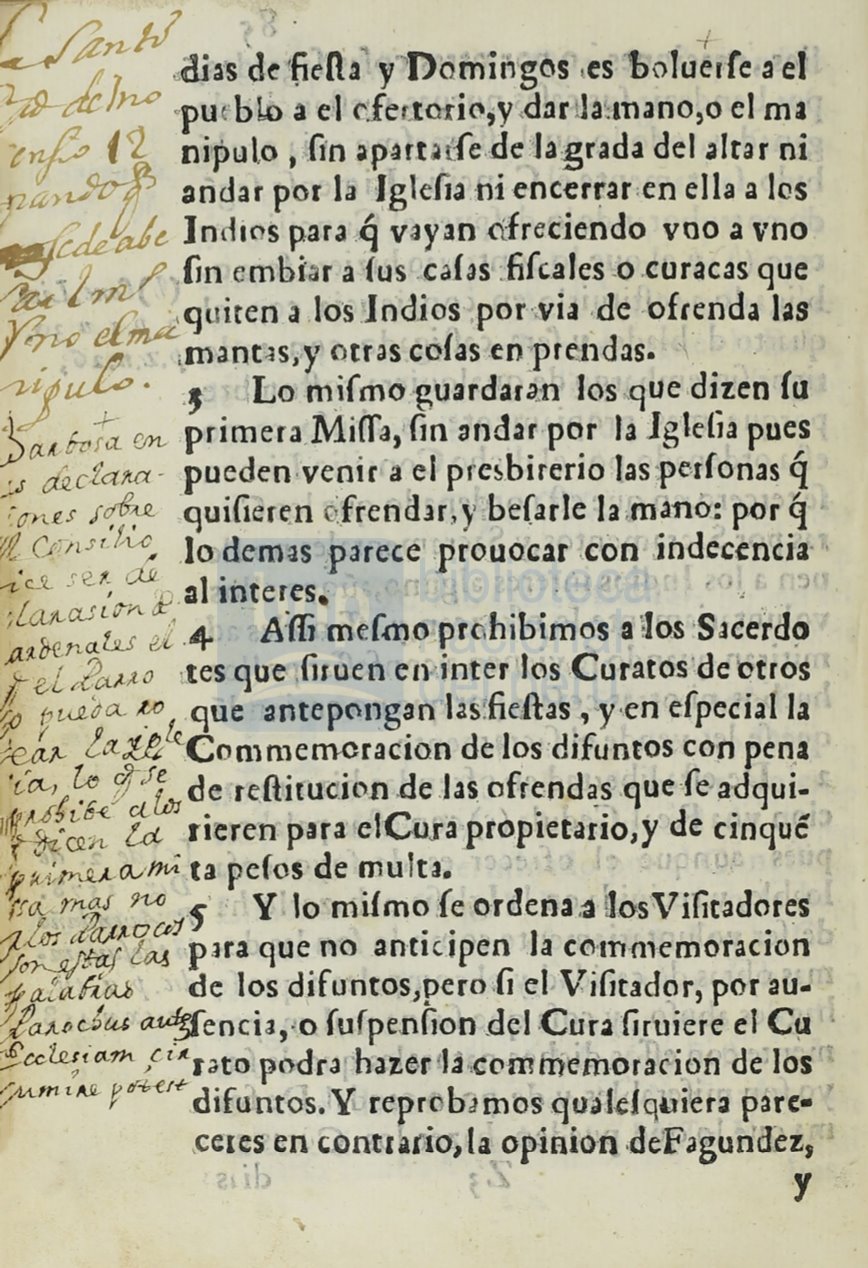 dias de fiesta y Domingos es boluerse a el
pueblo a el ofertorio,y dar la mano,o el ma
nipulo , sin apartarse de la grada del altar ni
andar por la Iglesia ni encerrar en ella a los
Indios para q́ vayan ofreciendo vno a vno
sin embiar a sus casas fiscales o curacas que
quiten a los Indios por via de ofrenda las
mantas,y otras cosas en prendas.
3 Lo mismo guardaran los que dizen su
primera Missa, sin andar por la Iglesia pues
pueden venir a el presbiterio las personas q́
quisieren ofrendar,y besarle la mano: por q́
lo demas parece prouocar con indecencia
al interes.
4 Assi mesmo prohibimos a los Sacerdo
tes que siruen en inter los Curatos de otros
que antepongan las fiestas , y en especial la
Commemoracion de los difuntos con pena
de restitucion de las ofrendas que se adqui-
rieren para el Cura propietario,y de cinquē
ta pesos de multa.
5 Y lo mismo se ordena a los Visitadores
para que no anticipen la commemoracion
de los difuntos,pero si el Visitador, por au-
sencia, o suspension del Cura siruiere el Cu
rato podra hazer la commemoracion de los
difuntos. Y reprobamos qualesquiera pare-
ceres en contrario,la opinion deFagundez,
y
Santo
de Ino
12
nando
se deabe
Y no el ma
nipulo.
Barbosa en
s declara-
iones sobre
el Consilio
ice ser de
clarasion de
ardenales el
el Parro
o pueda ro
ia, lo q se
prohibe a los
q dicen la
primera mi
sa mas no
a los parrocos
son estas las
palabras
Parochus autem
Ecclesiam cir
cumire potest